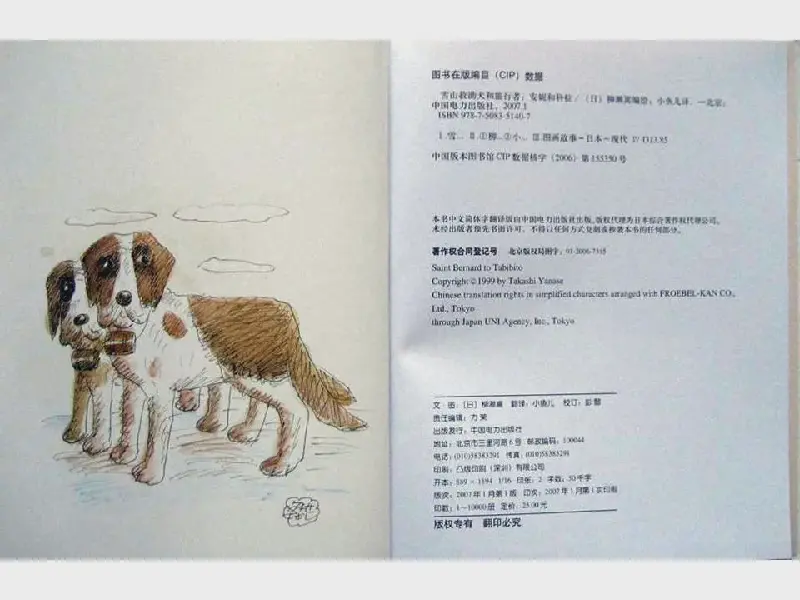 图书在版编目（CIP）数据
雪山救助犬和旅行者：安妮和科拉/（日）柳濑嵩编绘；小鱼儿译.—北京：
中国电力出版社，2007.1
ISBN 978-7-5083-5140-7
Ⅰ.雪… Ⅱ.①柳…②小… Ⅲ.图画故事－日本－现代 Ⅳ.I313.85
中国版本图书馆CIP数据核字（2006）第153350号
本书中文简体字翻译版由中国电力出版社出版，版权代理为日本综合著作权代理公司。
未经出版者预先书面许可，不得以任何方式复制或抄袭本书的任何部分。
著作权合同登记号 北京版权局图字：01-2006-7165
Saint Bernard to Tabibito
Copyright ©1999 by Takashi Yanase
Chinese translation rights in simplified characters arranged with FROEBEL-KAN CO.,
Ltd., Tokyo
through Japan UNI Agency, Inc., Tokyo
文·图：〔日〕柳濑嵩 翻译：小鱼儿 校订：彭懿
责任编辑：力荣
出版发行：中国电力出版社
地址：北京市三里河路6号 邮政编码：100044
电话：(010)58383291 传真：(010)58383291
印刷：凸版印刷（深圳）有限公司
开本：889×1194 1/16 印张：2 字数：30千字
版次：2007年1月第1版 印次：2007年1月第1次印刷
印数：1－10000册 定价：25.00元
版权专有 翻印必究